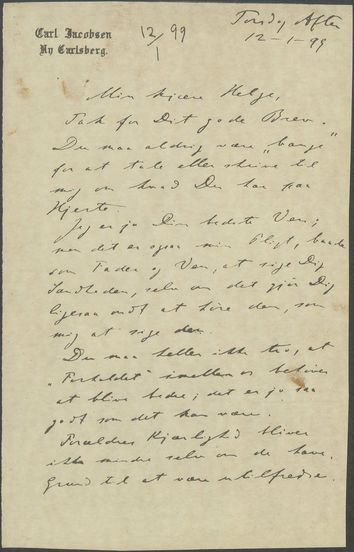 Carl Jacobsen
Ny Carlsberg.
12/1 99
Torsdag Aften
12-1-99
Min kjære Helge,
Tak for Dit gode Brev.
Du maa aldrig være "bange"
for at tale eller skrive til
mig om hvad Du har paa
Hjerte.
Jeg er jo Din bedste Ven;
men det er ogsaa min Pligt, baade
som Fader og Ven, at sige Dig
Sandheden, selv om det gjør Dig
ligesaa ondt at høre den, som
mig at sige den.
Du maa heller ikke tro, at
"Forholdet" imellem os behøver
at blive bedre; det er jo saa
godt som det kan være.
Forældres Kjærlighed bliver
ikke mindre selv om de have
Grund til at være utilfredse.